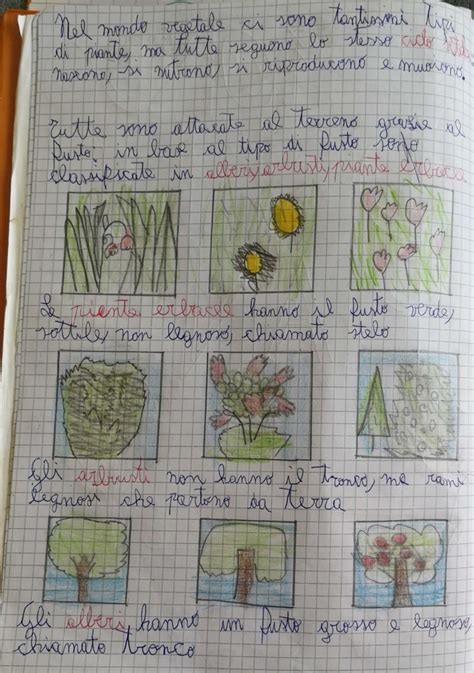 Nel mondo vegetale ci sono tantissimi tipi
di piante, ma tutte seguono lo stesso ciclo
nascono, si nutrono, si riproducono e muoiono,
Tutte sono attaccate al terreno grazie al
fusto: in base al tipo di fusto sono
classificate in alberi, arbusti, pianta erbacee
Le pianta erbacee hanno il fusto verde,
sottile, non legnoso, chiamato stelo
Gli arbusti non hanno il tronco, ma rami
legnosi che partono da terra
Gli alberi hanno un fusto grosso e legnoso,
chiamato tronco